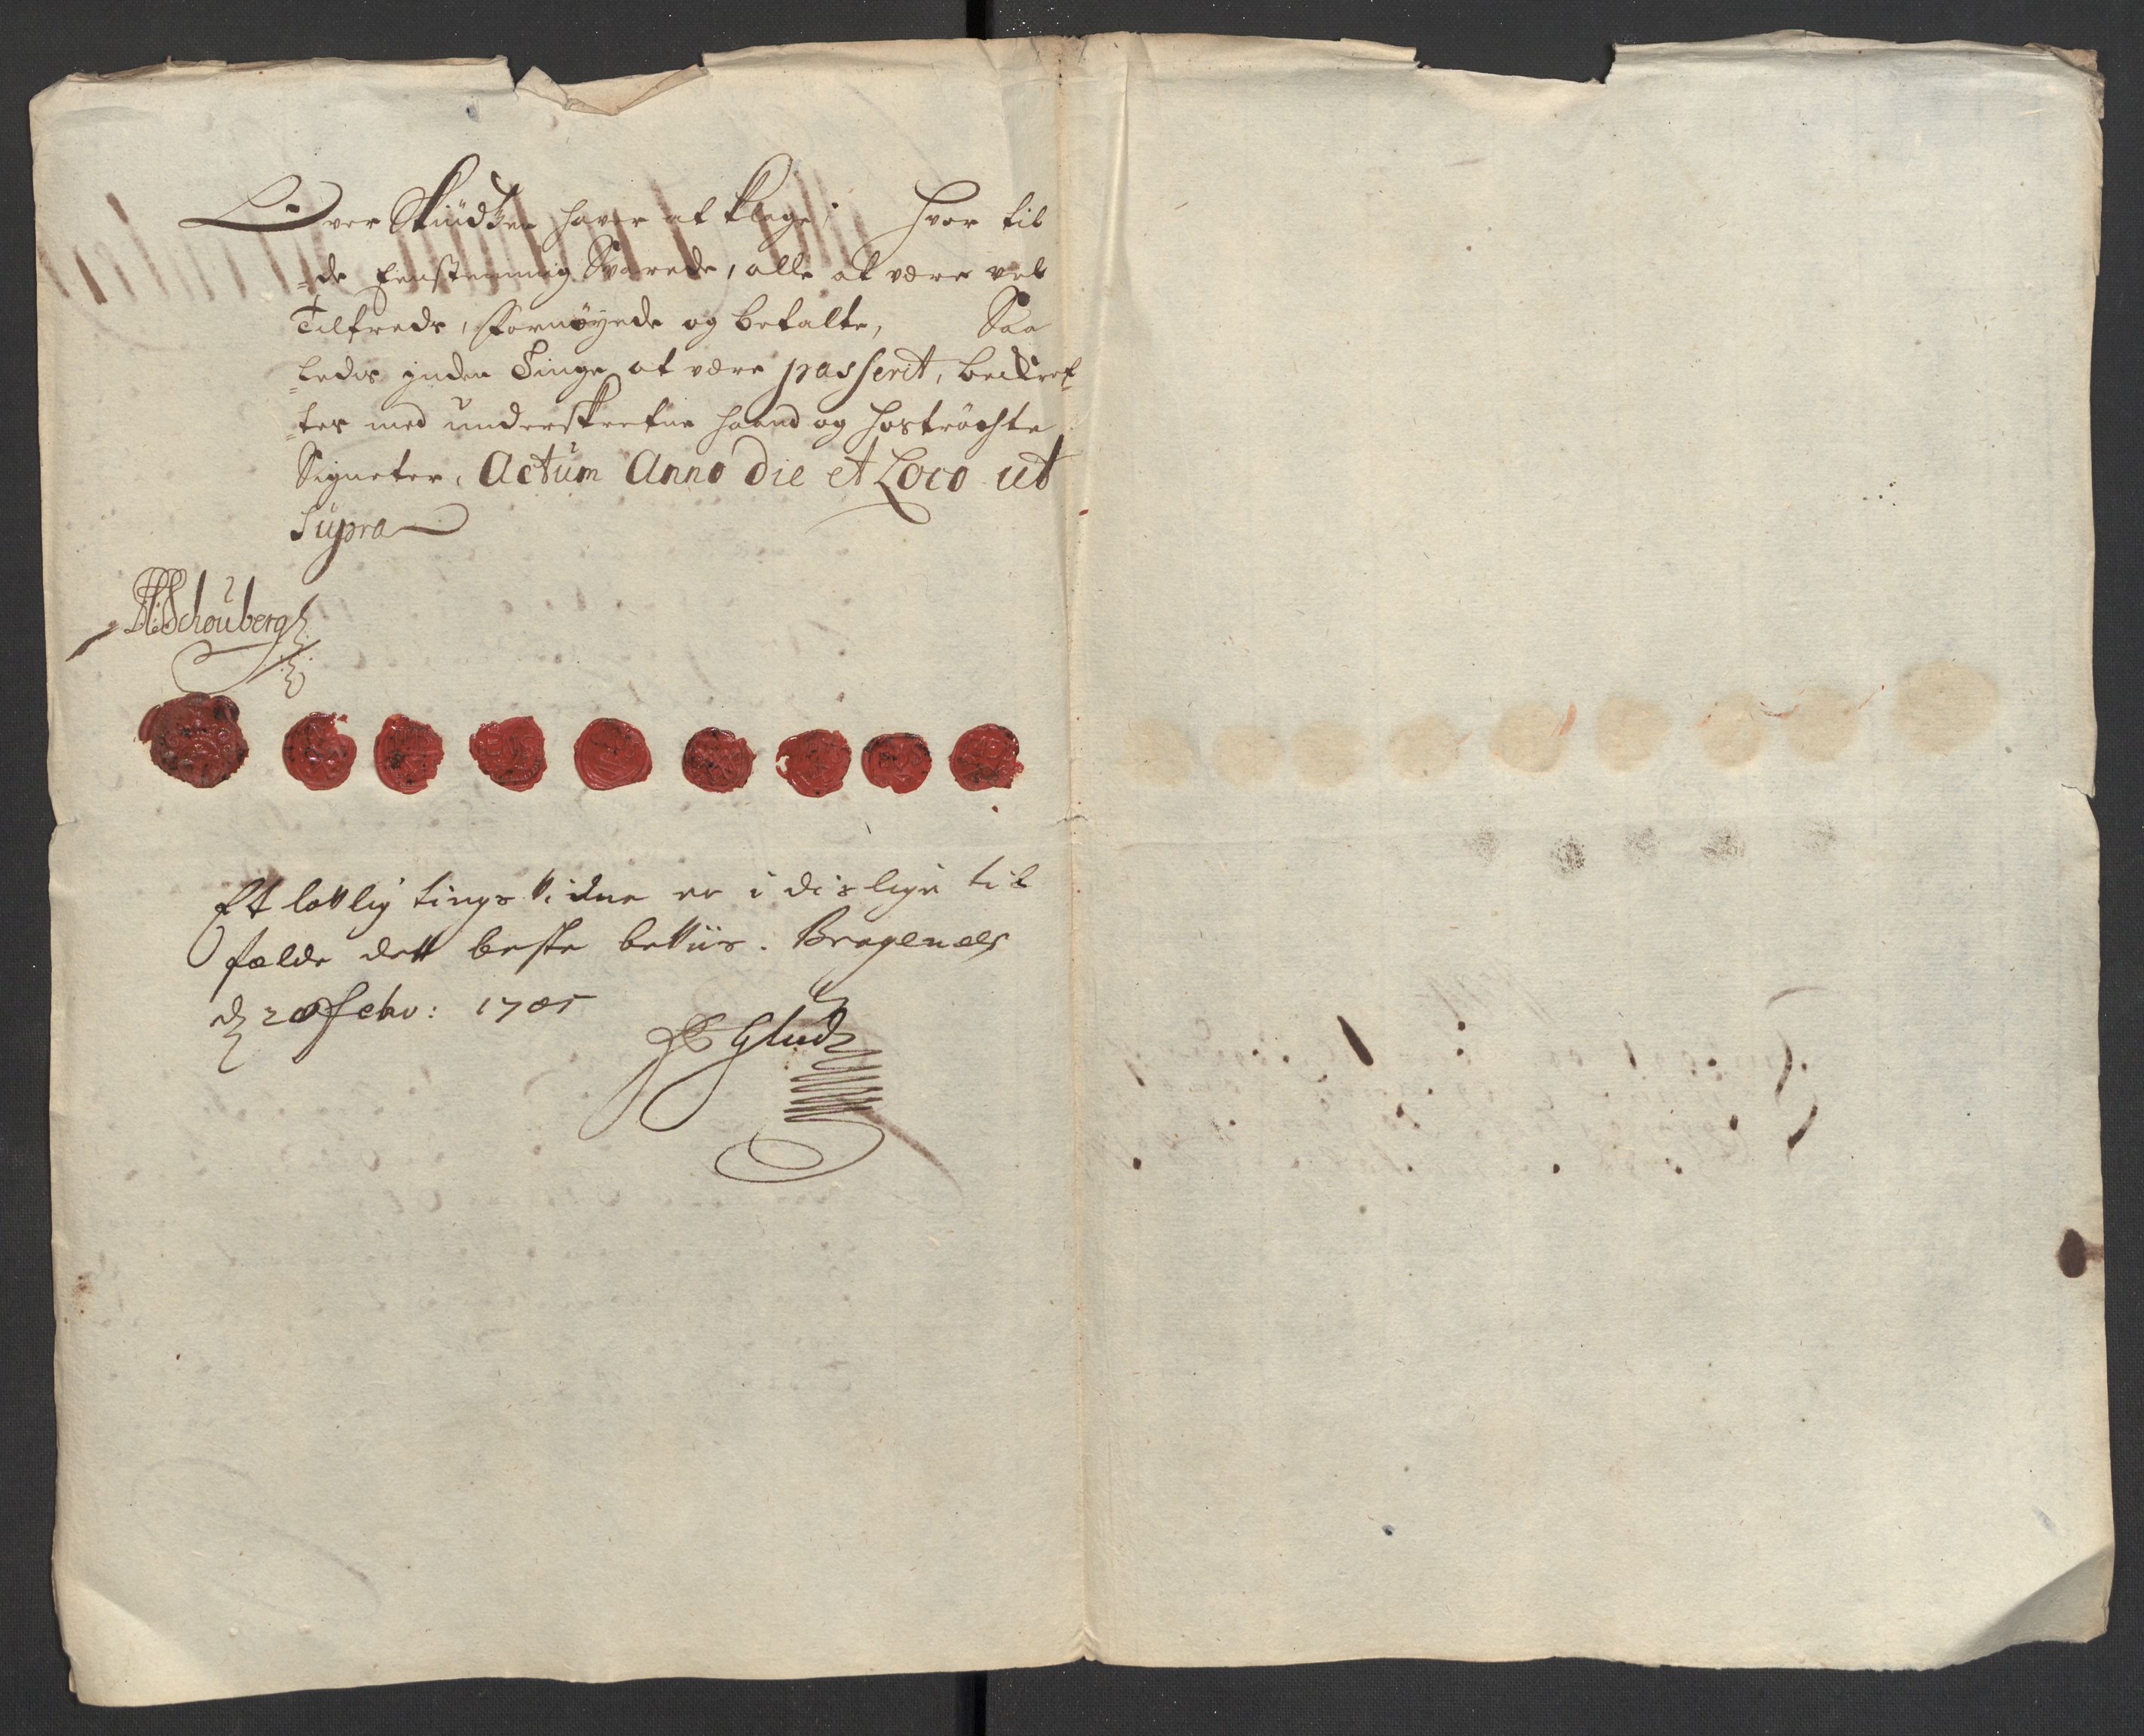 Over Skiudtzen haver at klage; Hvor til
=de Eenstemmig Svarede, alle at være vel
Tilfreds, fornøyede og betalte, Saa
=ledis inden Tinge at være passerit, becref=
=ter med underskrefne haand og hostrøchte
Signeter, Actum Anno die et Loco ut
Supra
Schouberg
Et lovlig tings vidne er i dislige til
fælde det beste beviis. Bragenæs
d 20 Febr: 1705
Glud